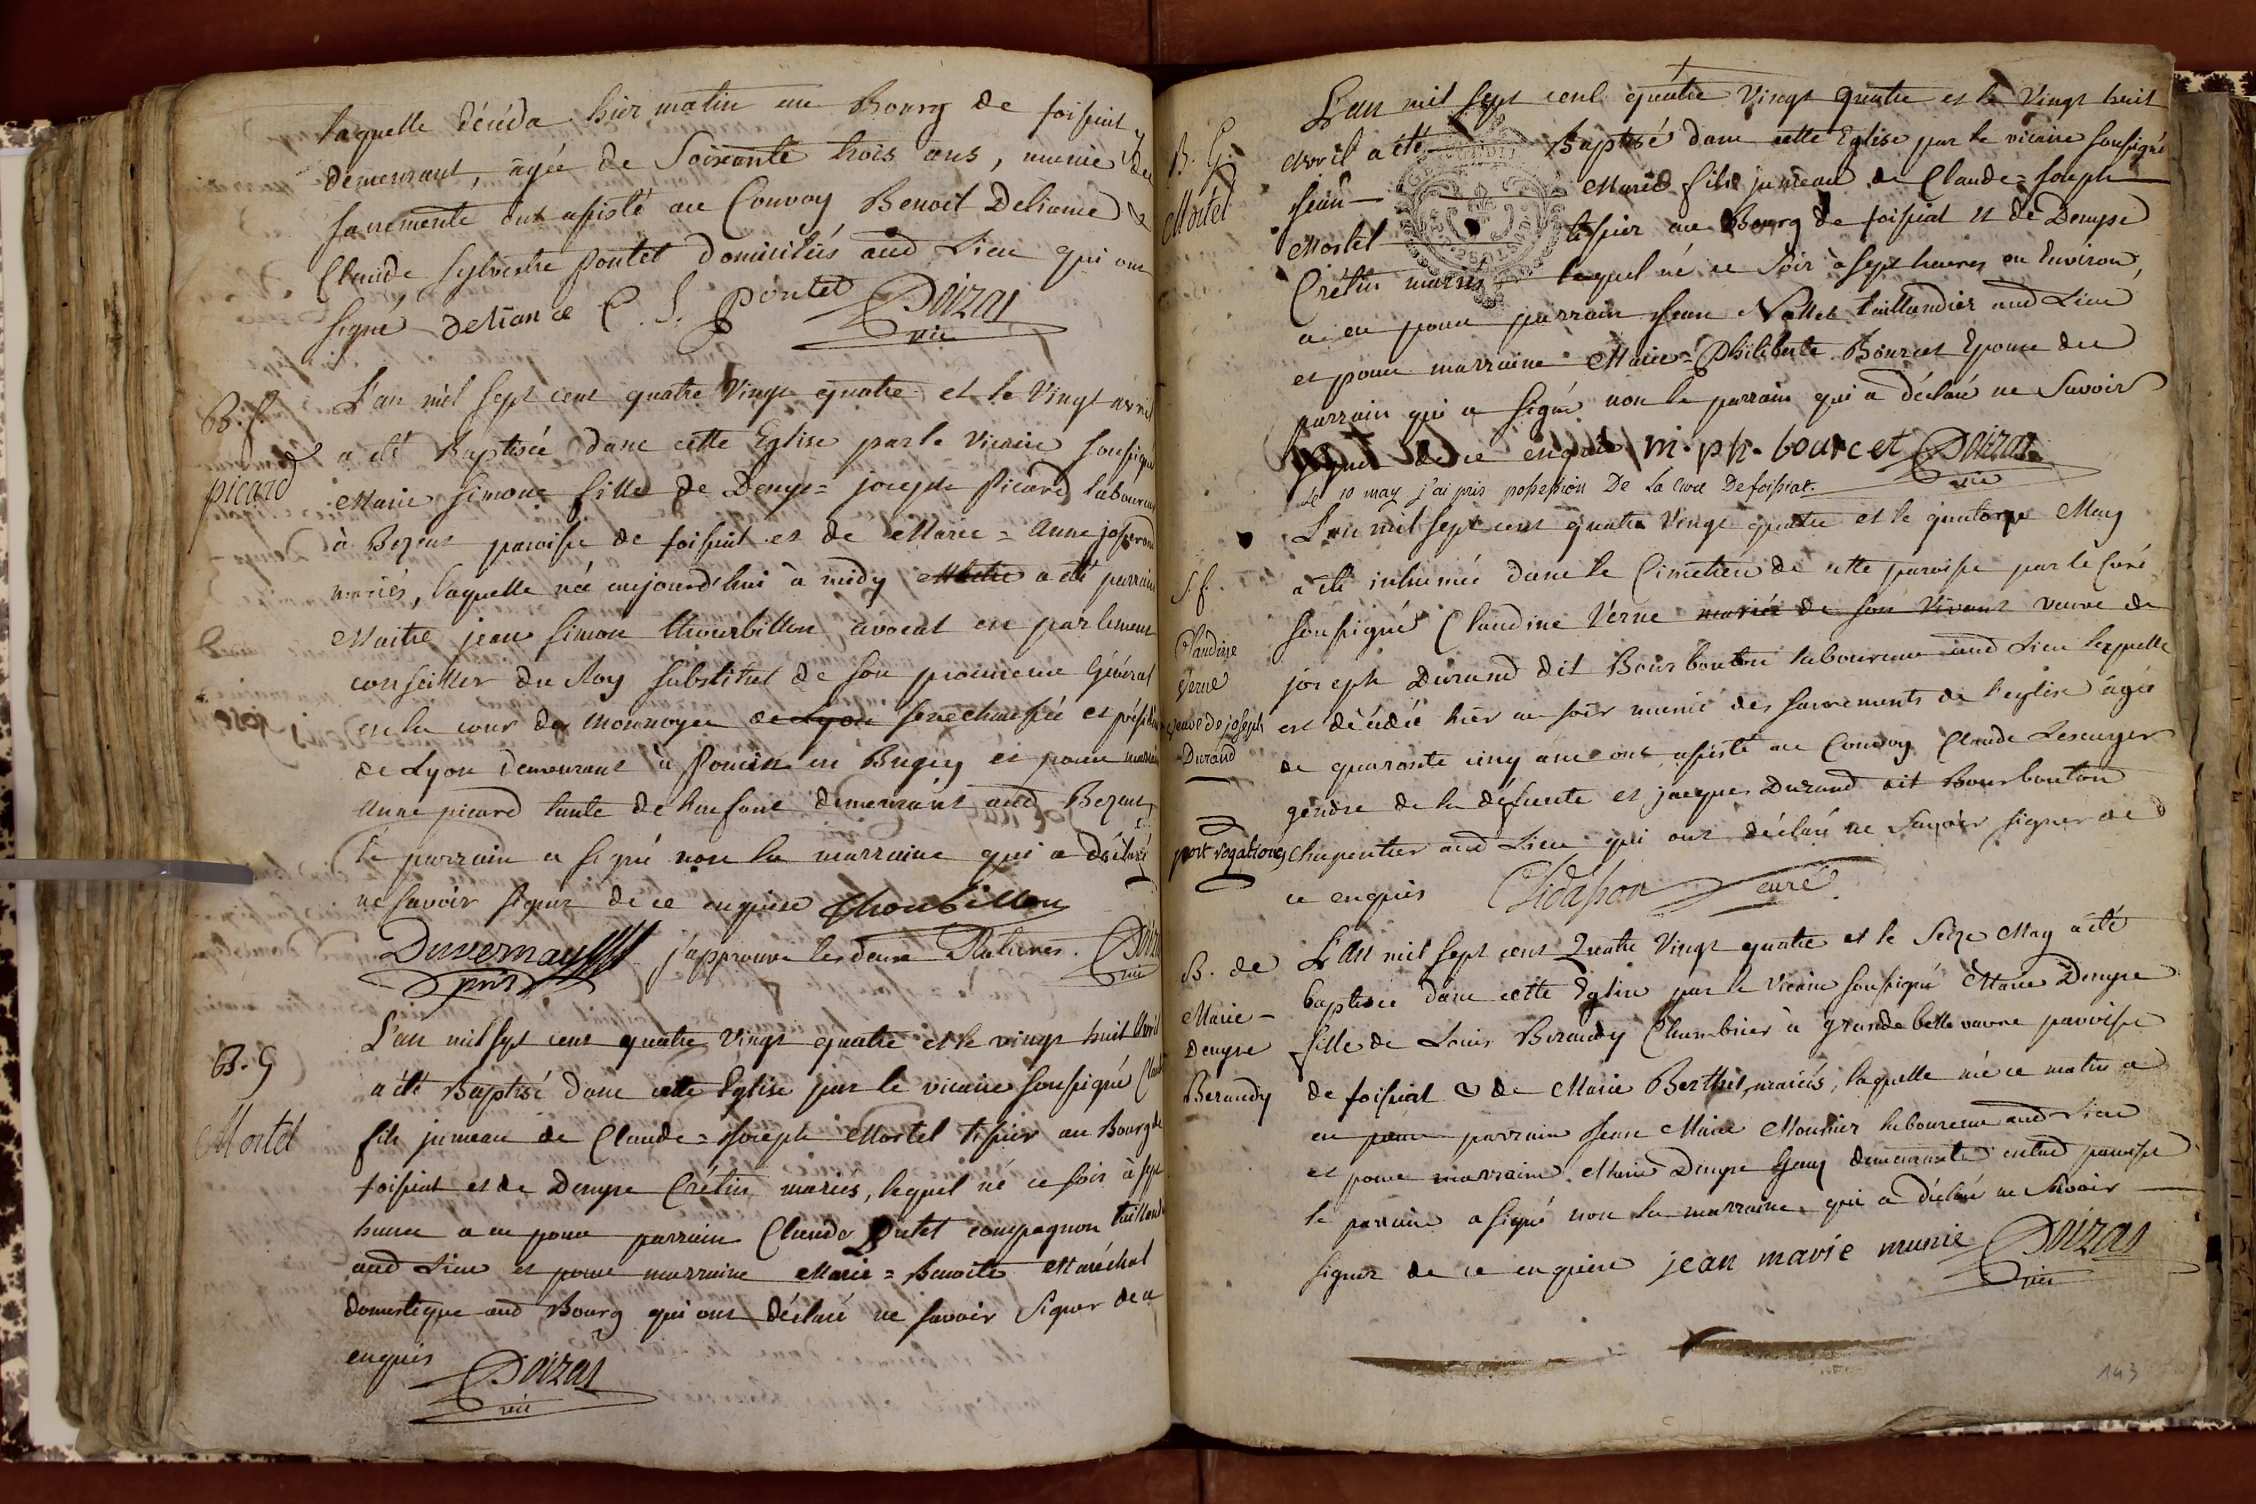 laquelle décéda hier matin au Bourg de foissiat y
demeurant, agée de Soixante trois ans, munie des
sacrements ont assisté au Convoy Benoit Deliance &
Claude Sylvestre Poutet domiciliés aud Lieu qui ont
signé deliance C. S. Poutet Doizat
vic
B. f.
picard
L'an mil sept cent quatre Vingt quatre et le Vingt avril
a été Baptisée dans cette Eglise par le Vicaire soussigné
Marie Simone fille de Denys = joseph Picard laboureur
à Bezens paroisse de foissiat et de Marie = Anne josserand
mariés, laquelle née aujourd'hui à midy Maitre a été parrain
Maitre jean Simon thourbillon avocat en parlement
conseiller du Roy substitut de son procureur Général
en la cour des monnoyes de Lyon senechaussée et présidial
de Lyon demeurant à Poncin en Bugey et pour marraine
Anne picard tante de l'enfant demeurant aud Bezens
le parrain a signé non la marraine qui a déclaré
ne savoir signer de ce enquise Thourbillon
Duvernay j'approuve les deux Ratures. Doizat
vic
B. G
Mortel
L'an mil sept cent quatre Vingt quatre et le vingt huit Avril
a été Baptisé dans cette Eglise par le vicaire soussigné Claude
fils jumeau de Claude = Joseph Mortel tissier au Bourg de
foissiat et de Denyse Crétin mariés, lequel né ce soir à sept
heures a eu pour parrain Claude Putet compagnon taillandier
aud Lieu et pour marraine Marie = Benoite Maréchal
domestique aud Bourg qui ont déclaré ne savoir Signer de ce
enquis
Doizat
vic
B. G.
Mortel
L'an mil sept cent quatre Vingt quatre et le Vingt huit
Avril a été Baptisé dans cette Eglise par le vicaire soussigné
Jean — Marie fils jumeau de Claude = Joseph
Mortel tissier au Bourg de foissiat et de Denyse
Crétin mariés lequel né ce Soir à sept heures ou Environ,
a eu pour parrain Jean Nallet taillandier aud Lieu
et pour marraine Marie = Philiberte Bourcet Epouse du
parrain qui a signé non le parrain qui a déclaré ne Savoir
signer de ce enquis m. ph. bourcet Doizat
vic
Le 10 may j'ai pris possession De La Cure De foissiat.
S. f.
Claudine
Verne
veuve de joseph
Durand
L'an mil sept cent quatre Vingt quatre et le quatorze May
a été inhumée dans le Cimetiere de cette paroisse par le Curé
soussigné Claudine Verne mariée de son Vivant veuve de
joseph Durand dit Bourbouton laboureur aud Lieu laquelle
est décédée hier au soir munie des sacrements de l'eglise agée
de quarante cinq ans ont assisté au Convoy Claude Lescuyer
gendre de la defunte et jacques Durand dit Bourbouton
post rogationes
charpentier aud Lieu qui ont déclaré ne Savoir signer de
ce enquis Chidasson curé
B. de
Marie —
Denyse
Beraudy
L'An mil sept cent Quatre Vingt quatre et le Seize May a été
baptisée dans cette Eglise par le Vicaire soussigné Marie Denyse
fille de Louis Beraudy Chambrier à grande belle vavre paroisse
de foissiat & de Marie Berthet, mariés, laquelle née ce matin a
eu pour parrain Jean Marie Mounier laboureur aud Lieu
et pour marraine Marie Denyse demeurante en lad paroisse
le parrain a signé non la marraine qui a déclaré ne Savoir
signer de ce enquise jean marie munie Doizat
vic
143